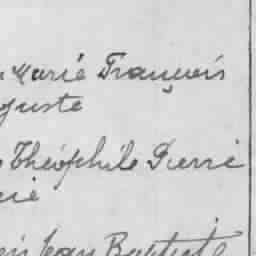 Marie François
guste
Théophile Pierre
rie
Jean Baptiste